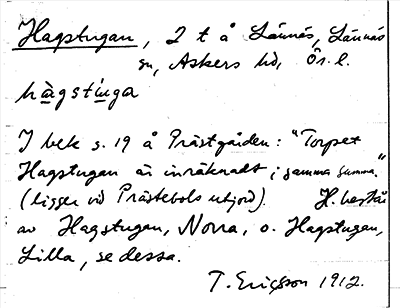 Hagstugan, 2 t å Lännäs, Lännäs
sn, Askers hd, Ör. l.
hàgstúga
I bek s. 19 å Prästgården: "Torpet
Hagstugan är inräknadt i samma summa."
(ligger vid Prästebols utjord). H. består
av Hagstugan, Norra, o. Hagstugan,
Lilla, se dessa.
T. Ericsson 1912.